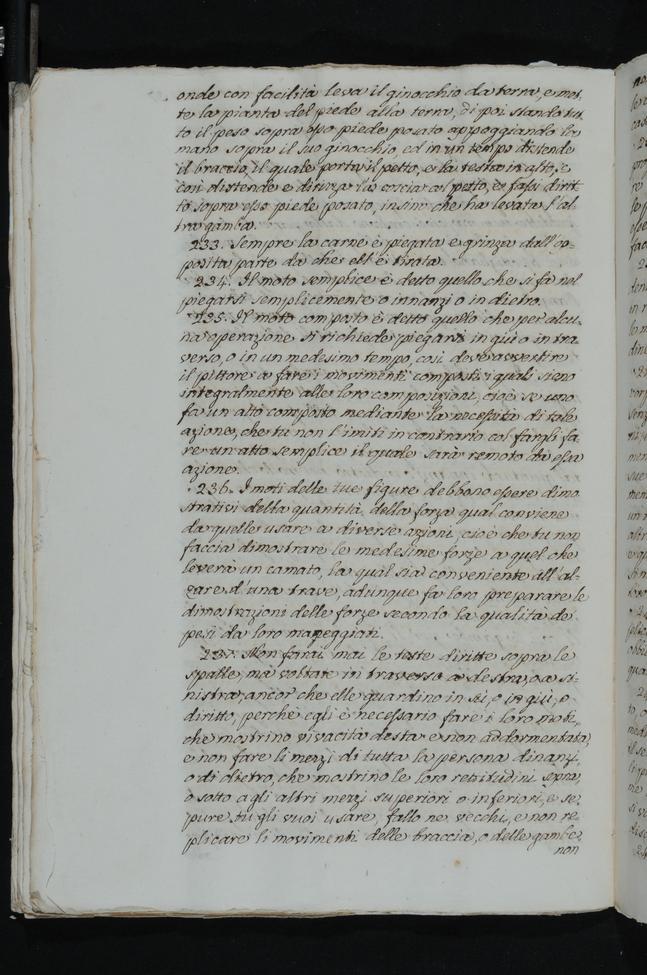 onde con facilità leva il ginocchio da terra, e met-
te la pianta del piede alla terra, di poi stando tut-
to il peso sopra esso piede posato appoggiando la
mano sopra il suo ginocchio, ed in un tempo distende
il braccio, il quale porta il petto, e la testa in alto, e
così distende e dirizza la coscia col petto, e fassi dirit-
to sopra esso piede posato, insin che ha levata l'al-
tra gamba.
233. Sempre la carne è piegata e grinza dall'op-
posita parte da che ell'è tirata.
234. Il moto semplice è detto quello che si fa nel
piegarsi semplicemente o innanzi o in dietro.
235. Il moto composto è detto quello che per alcu-
na operazione si richiede piegarsi in giù o in tra
verso, o in un medesimo tempo, così deve avvertire
il pittore a fare i movimenti composti i quali sieno
integralmente alle loro composizioni, cioè se uno
fa un atto composto mediante la necessità di tale
azione, che tu non l'imiti in contrario col fargli fa
re un atto semplice il quale sarà remoto da essa
azione.
236. I moti delle tue figure debbono essere dimo
strativi della quantità della forza qual conviene
da quelle usare a diverse azioni, cioè che tu non
faccia dimostrare le medesime forze a quel che
leverà un camato, la qual sia conveniente all'al-
zare d'una trave, adunque fa loro preparare le
dimostrazioni delle forze secondo la qualità de'
pesi da loro maneggiati.
237. Non farai mai le teste diritte sopra le
spalle, ma voltare in traverso a destra, o a si-
nistra, ancor che elle guardino in sù, o in giù, o
diritto, perchè egli è necessario fare i loro moti,
che mostrino vivacità desta e non addormentata,
e non fare li mezzi di tutta la persona dinanzi,
o di dietro, che mostrino le loro rettitudini sopra,
o sotto agli altri mezzi superiori o inferiori, e se
pure tu gli vuoi usare, fallo ne' vecchi, e non re
plicare li movimenti delle braccia, o delle gambe,
non